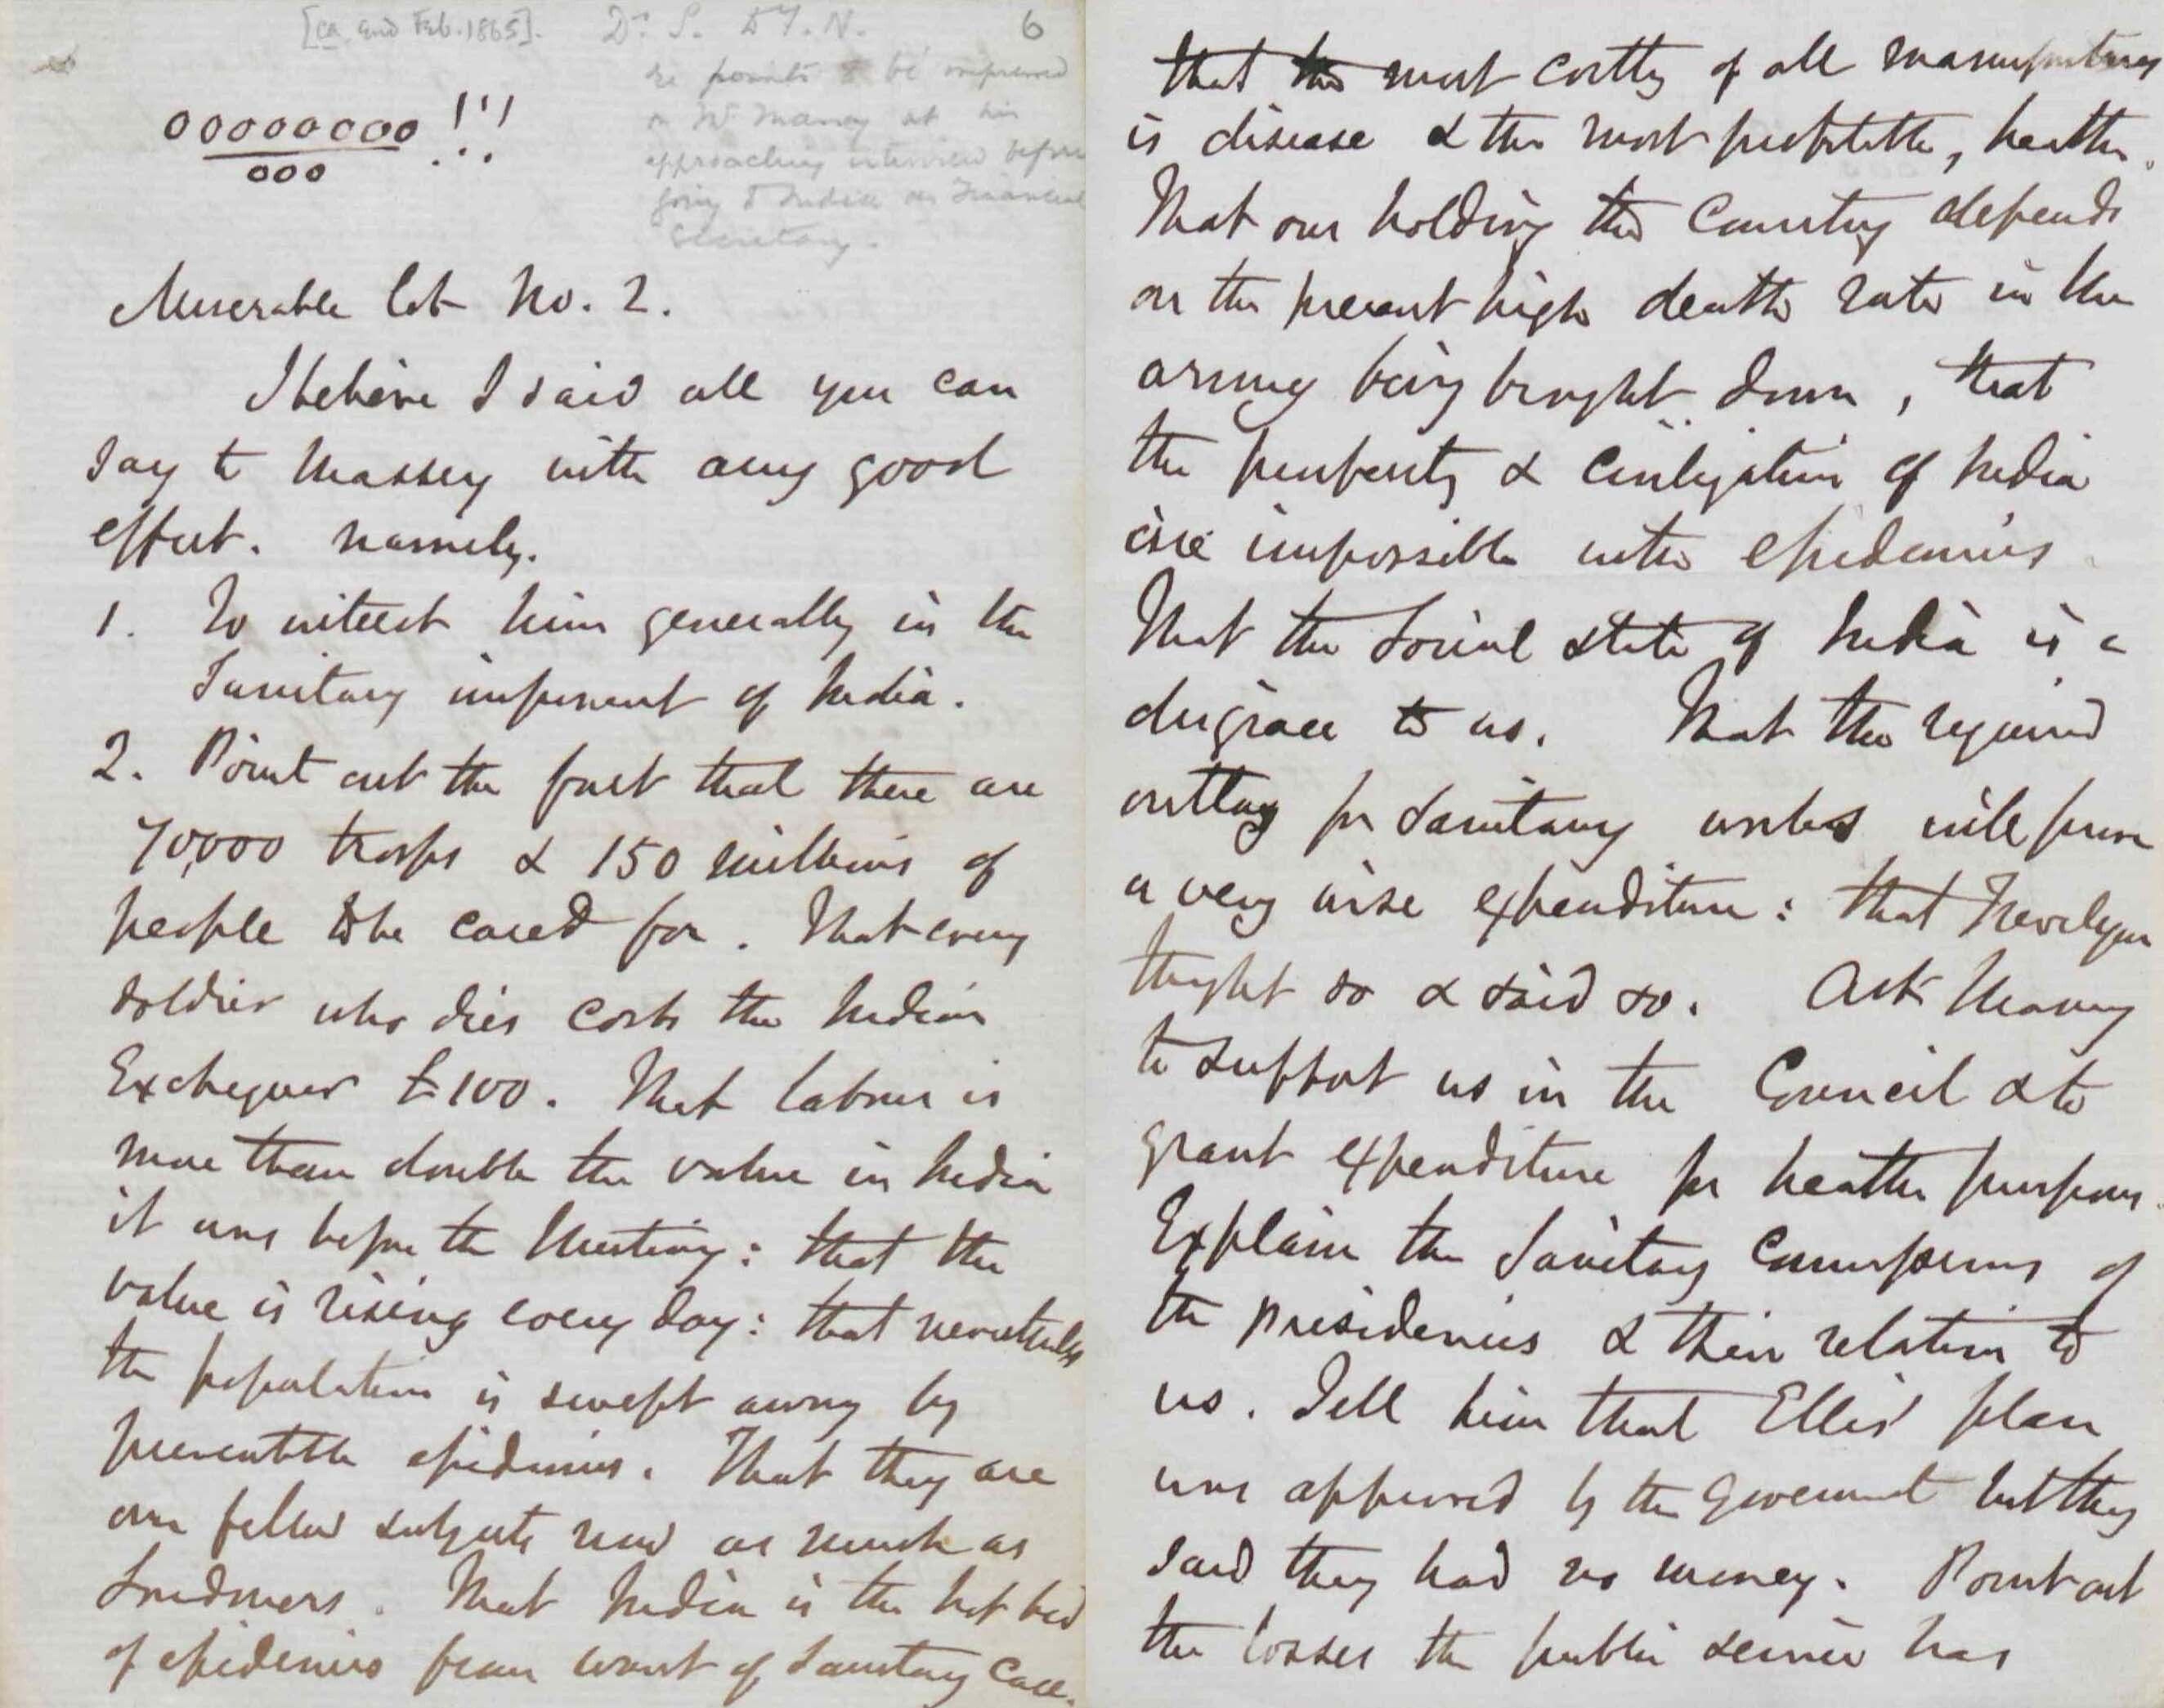 [ca. 2nd Feb. 1865]. Dr. S. to F. N. 6
re points to be impressed
on Mr Massey at his
approaching interview before
going to India as Financial
Secretary.
00000000!!!
000
Miserable lot No. 2.
I believe I said all you can
say to Massey with any good
effect. namely.
1. To interest him generally in the
Sanitary improvement of India.
2. Point out the fact that there are
70,000 troops & 150 millions of
people to be cared for. That every
soldier who dies costs the Indian
Exchequer £100. That labour is
more than double the value in India
it was before the Mutiny: that the
value is rising every day: that nevertheless
the population is swept away by
preventible epidemics. That they are
our fellow subjects now as much as
Londoners. That India is the hot bed
of epidemics from want of Sanitary care.
that the most costly of all manufactures
is disease & the most profitable, health.
That our holding the Country depends
on the present high death rate in the
army being brought down, that
the prosperity & civilization of India
are impossible with epidemics
That the social state of India is a
disgrace to us. That the required
outlay for Sanitary works will prove
a very wise expenditure: that Trevelyan
thought so & said so. Ask Massey
to support us in the Council & to
grant expenditure for health purposes.
Explain the Sanitary Commissions of
the presidencies & their relation to
us. Tell him that Ellis' plan
was approved by the Government but they
said they had no money. Point out
the losses the public service has